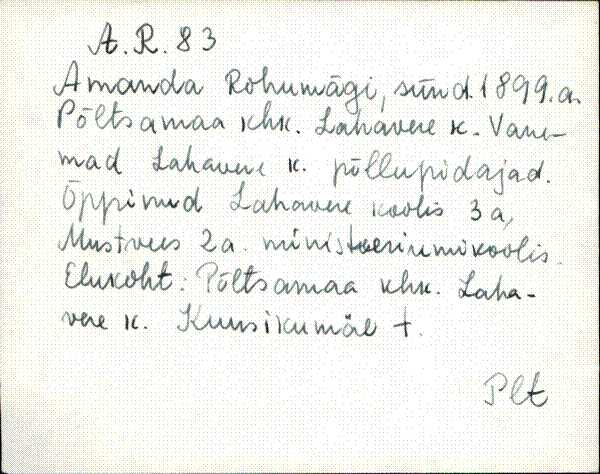 A. R. 83
Amanda Rohumägi, sünd. 1899. a.
Põltsamaa khk. Lahavere k. Vane-
mad Lahavere k. põllupidajad.
Õppinud Lahavere koolis 3 a,
Mustvees 2 a. ministeeriumikoolis.
Elukoht: Põltsamaa khk. Laha-
vere k. Kuusikumäe t.
Plt